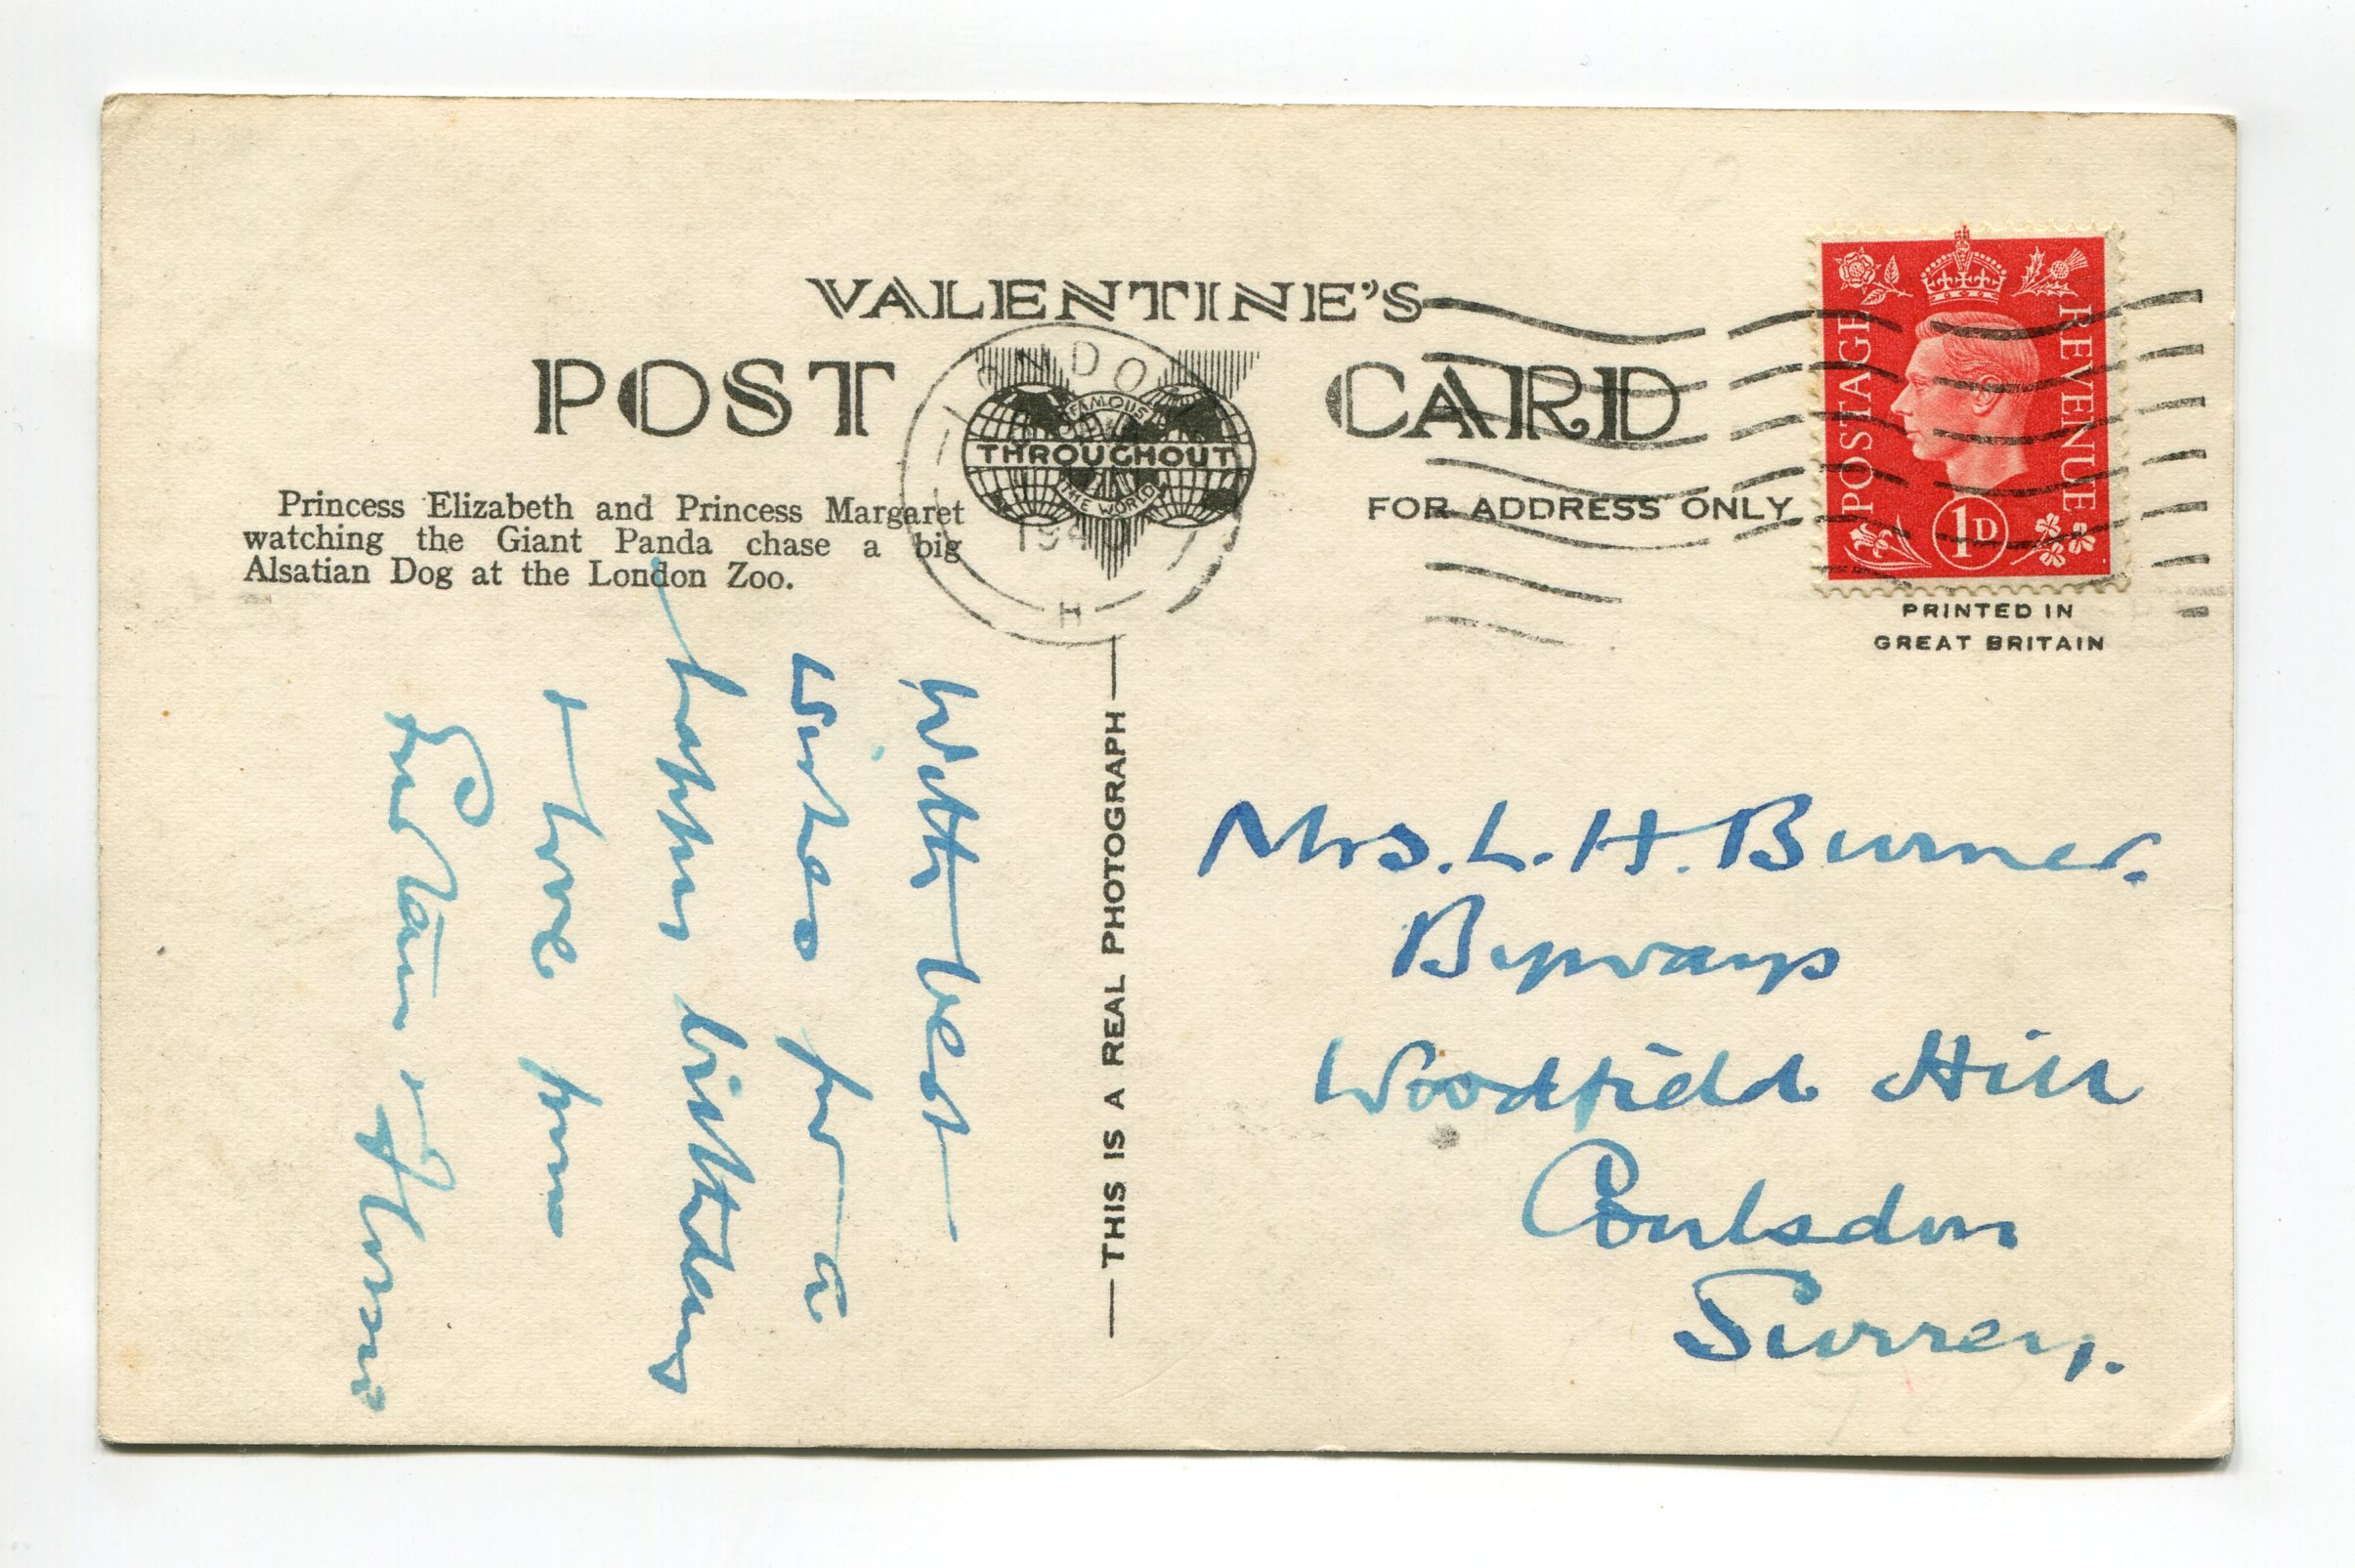 VALENTINE'S
POST CARD
FAMOUS
THROUGHOUT
THE WORLD
LONDON
194
H
POSTAGE REVENUE
1D
FOR ADDRESS ONLY
PRINTED IN
GREAT BRITAIN
Princess Elizabeth and Princess Margaret
watching the Giant Panda chase a big
Alsatian Dog at the London Zoo.
With best
wishes for a
happy birthday
+ love from
THIS IS A REAL PHOTOGRAPH
Mrs. L. H. Burner.
Byways
Woodfield Hill
Coulsdon
Surrey.